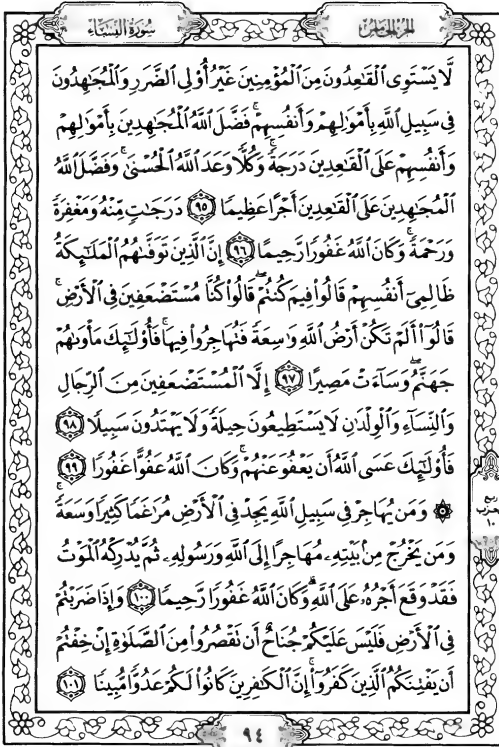 سُورَةُ النِّسَاءِ
الجُزءُ الخَامِسُ
لَّا يَسْتَوِي الْقَاعِدُونَ مِنَ الْمُؤْمِنِينَ غَيْرُ أُوْلِي الضَّرَرِ وَالْمُجَاهِدُونَ
فِي سَبِيلِ اللَّهِ بِأَمْوَالِهِمْ وَأَنفُسِهِمْ ۚ فَضَّلَ اللَّهُ الْمُجَاهِدِينَ بِأَمْوَالِهِمْ
وَأَنفُسِهِمْ عَلَى الْقَاعِدِينَ دَرَجَةً ۚ وَكُلًّا وَعَدَ اللَّهُ الْحُسْنَىٰ ۚ وَفَضَّلَ اللَّهُ
الْمُجَاهِدِينَ عَلَى الْقَاعِدِينَ أَجْرًا عَظِيمًا ٩٥ دَرَجَاتٍ مِّنْهُ وَمَغْفِرَةً
وَرَحْمَةً ۚ وَكَانَ اللَّهُ غَفُورًا رَّحِيمًا ٩٦ إِنَّ الَّذِينَ تَوَفَّاهُمُ الْمَلَائِكَةُ
ظَالِمِي أَنفُسِهِمْ قَالُوا فِيمَ كُنتُمْ ۖ قَالُوا كُنَّا مُسْتَضْعَفِينَ فِي الْأَرْضِ ۚ
قَالُوا أَلَمْ تَكُنْ أَرْضُ اللَّهِ وَاسِعَةً فَتُهَاجِرُوا فِيهَا ۚ فَأُوْلَٰئِكَ مَأْوَاهُمْ
جَهَنَّمُ ۖ وَسَاءَتْ مَصِيرًا ٩٧ إِلَّا الْمُسْتَضْعَفِينَ مِنَ الرِّجَالِ
وَالنِّسَاءِ وَالْوِلْدَانِ لَا يَسْتَطِيعُونَ حِيلَةً وَلَا يَهْتَدُونَ سَبِيلًا ٩٨
فَأُوْلَٰئِكَ عَسَى اللَّهُ أَن يَعْفُوَ عَنْهُمْ ۚ وَكَانَ اللَّهُ عَفُوًّا غَفُورًا ٩٩
۞ وَمَن يُهَاجِرْ فِي سَبِيلِ اللَّهِ يَجِدْ فِي الْأَرْضِ مُرَاغَمًا كَثِيرًا وَسَعَةً ۚ
وَمَن يَخْرُجْ مِن بَيْتِهِ مُهَاجِرًا إِلَى اللَّهِ وَرَسُولِهِ ثُمَّ يُدْرِكْهُ الْمَوْتُ
فَقَدْ وَقَعَ أَجْرُهُ عَلَى اللَّهِ ۗ وَكَانَ اللَّهُ غَفُورًا رَّحِيمًا ١٠٠ وَإِذَا ضَرَبْتُمْ
فِي الْأَرْضِ فَلَيْسَ عَلَيْكُمْ جُنَاحٌ أَن تَقْصُرُوا مِنَ الصَّلَاةِ إِنْ خِفْتُمْ
أَن يَفْتِنَكُمُ الَّذِينَ كَفَرُوا ۚ إِنَّ الْكَافِرِينَ كَانُوا لَكُمْ عَدُوًّا مُّبِينًا ١٠١
ربع
الحزب
١٠
٩٤